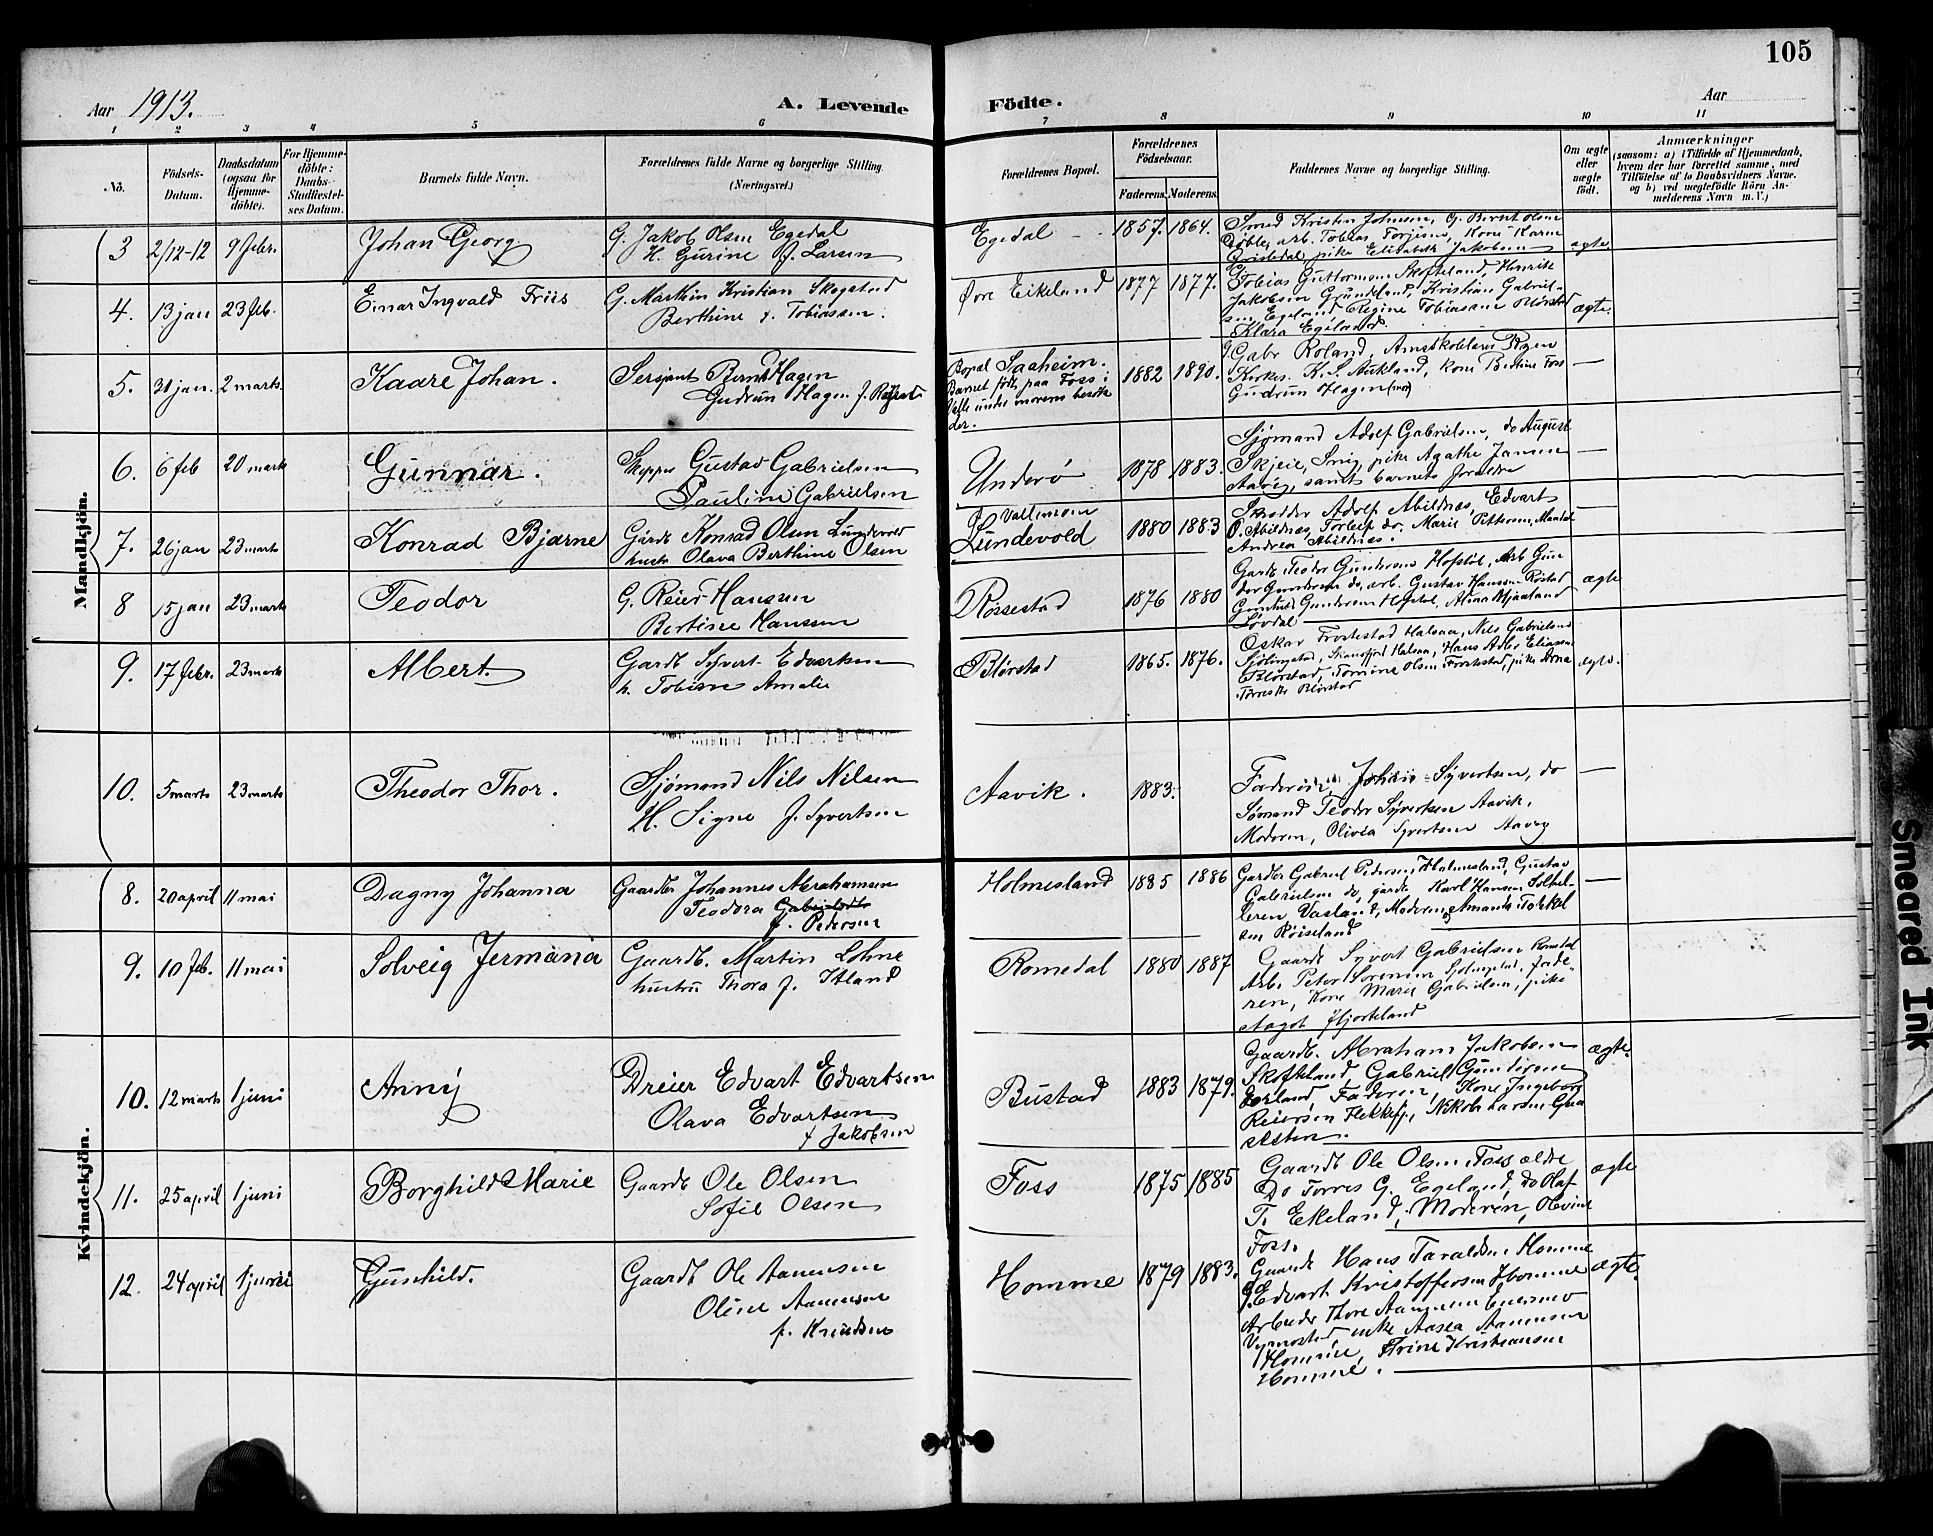 105
Aar 1913.
A. Levende Födte.
Aar
1 2 3 4 5 6 7 8 9 10 11
No.
Födsels-Datum.
Daabsdatum (ogsaa for Hjemme-döbte).
For Hjemme-döbte: Daabs-Stadfæstel-ses Datum.
Barnets fulde Navn.
Forældrenes fulde Navne og borgerlige Stilling. (Næringsvei.)
Forældrenes Bopæl.
Forældrenes Födselsaar.
Faderens. Moderens.
Faddernes Navne og borgerlige Stilling.
Om ægte eller uægte födt.
Anmærkninger
(saasom: a) i Tilfælde af Hjemmedaab, hvem der har forrettet samme, med Tilföielse af to Daabsvidners Navne, og b) ved uægtefödte Börn An-melderens Navn m. V.)
Mandkjön.
3 2/12-12 9 febr. Johan Georg
G. Jakob Olsen Egedal
H. Gurine f. Larsen
Egedal 1857. 1864.
Smed Kristen Johnsen, G. Bernt Olsen
arb. Tobias Torjesen, Kone Karen
pike Elisabeth Jakobsen
ægte
4. 13 jan 23 feb. Einar Ingvald Friis
G. Marthin Kristian Skogstad
Berthine f. Tobiassen.
Øvre Eikeland 1877 1877.
Tobias Guttormsen Skofteland, Henrik
Jakobsen Grundeland, Kristian Gabriel-
sen Egeland, Regine Tobiassen Blørstad
Klara Egeland
ægte.
5. 31 jan. 2 marts. Kaare Johan.
Sersjant Bernt Hagen
Gudrun Hagen f.
Bopæl Saaheim.
Barnet født paa Foss i
Valle under morens besøk
der.
1882 1890.
Gabr Roland, Amtskolelærer
Kirkes. K. S. Birkland, kone Bertine Foss
Gudrun Hagen (mor)
—
6. 6 feb 20 mark Gunnar.
Skipper Gustav Gabrielsen
Pauline Gabrielsen
Underø 1878 1883.
Sjømand Adolf Gabrielsen, do August
Skjeie, Snig, pike Agathe Jansen
Aavig, samt barnets forældre
—
7. 26 jan 23 marts Konrad Bjarne
Gårdb Konrad Olsen Lundevold
hustr Olava Berthine Olsen
f Vallemoen
Lundevold 1880 1883
Skrædder Adolf Abildnæs, Edvart
O. Abildnæs, Torleif do, Marie Pettersen,
Andrea Abildnæs.
—
8 15 jan 23 mark Teodor
G. Reier Hanssen
Bertine Hanssen
Røssestad 1876 1880
Gardb. Teodor Gundersen Hofstøl, Arb Gun
der Gundersen do, arb. Gustav Hansen Røstad
Gunhild Gundersen Hofstøl, Alma Mjaaland
Løvdal
ægte
9. 17 febr. 23 marts Albert.
Gardb Syvert Edvartsen
h. Tobine Amalie
Blørstad 1865. 1876.
Oskar Frostestad Halsaa, Nils Gabrielsen
Sjølingstad, Skansfjord Halsaa, Hans Atle Eliassen
Blørstad, Tomine Olsen Frostestad, pike Anna
Torresen Blørstad
ægte.
10. 5 marts 23 marts Theodor Thor.
Sjömand Nils Nilsen
H. Signe f. Syvertsen
Aavik. 1883.
Syvertsen, do
Sømand Teodor Syvertsen Aavik.
Moderen, Olivia Syvertsen Aavig
—
Kvindekjön.
8. 20 april 11 mai Dagny Johanna
Gaardbr Johannes Abrahamsen
Teodora
f. Pedersen
Holmesland 1885 1886
Gardbr Gabriel Pedersen, Holmesland, Gustav
Gabrielsen do, gårdb Karl Hansen
Vasland, Moderen og Amanda Torkel
sen Røiseland
—
9. 10 feb. 11 mai Solveig Jermana
Gaardb. Martin Lohne
hustru Thora f. Itland
Romedal 1880 1887
Gaardb Syvert Gabrielsen Romedal
Arb. Peter Sørensen Sjølingstad, fade-
ren, Kone Marie Gabrielsen, pike
Aagot Hjorteland
10. 12 marts 1 juni Anny
Dreier Edvart Edvartsen
Olava Edvartsen
f Jakobsen
Bustad 1883 1879.
Gaardb. Abraham Jakobsen
Skofteland Gabriel Gundersen
Faderen, Kone Ingeborg
Reiersen Flekkefj.,
ægte.
11. 25 april 1 juni Borghild Marie
Gaardb Ole Olsen
Sofie Olsen
Foss 1875 1885
Gaardb Ole Olsen Foss ældre
Do Torres G. Egeland, do Olaf
T. Ekeland, Moderen, Olevine
Foss.
ægte
12. 24 april 1 juni Gunhild.
Gaardb Ole Aanensen
Oline Aanensen
f. Knudsen
Homme 1879 1883.
Gaardb Hans Taraldsen Homme
G. Edvart Kristoffersen Homme
Arbeider Thore Aanensen
Vigmostad, enke Aasea Aanensen
Homme, Trine Kristiansen
Homme.
ægte.
Smeared Ink